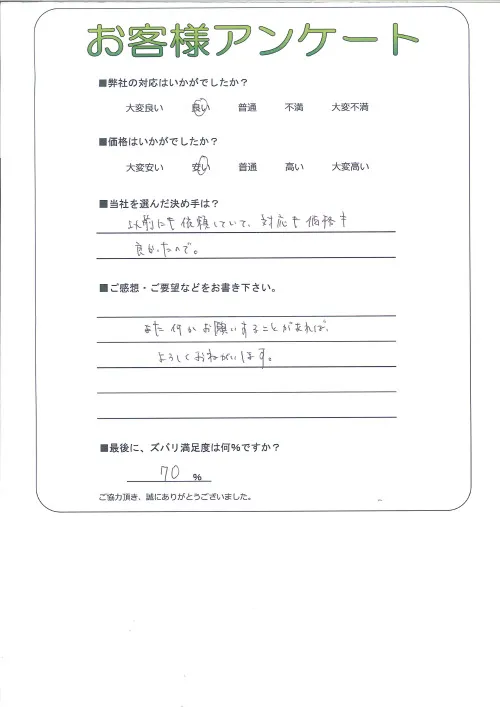 お客様アンケート
■弊社の対応はいかがでしたか？
大変良い 良い 普通 不満 大変不満
■価格はいかがでしたか？
大変安い 安い 普通 高い 大変高い
■当社を選んだ決め手は？
以前にも依頼していて、対応も価格も
良かったので。
■ご感想・ご要望などをお書き下さい。
また何かお願いすることがあれば、
よろしくおねがいします。
■最後に、ズバリ満足度は何%ですか？
70 %
ご協力頂き、誠にありがとうございました。